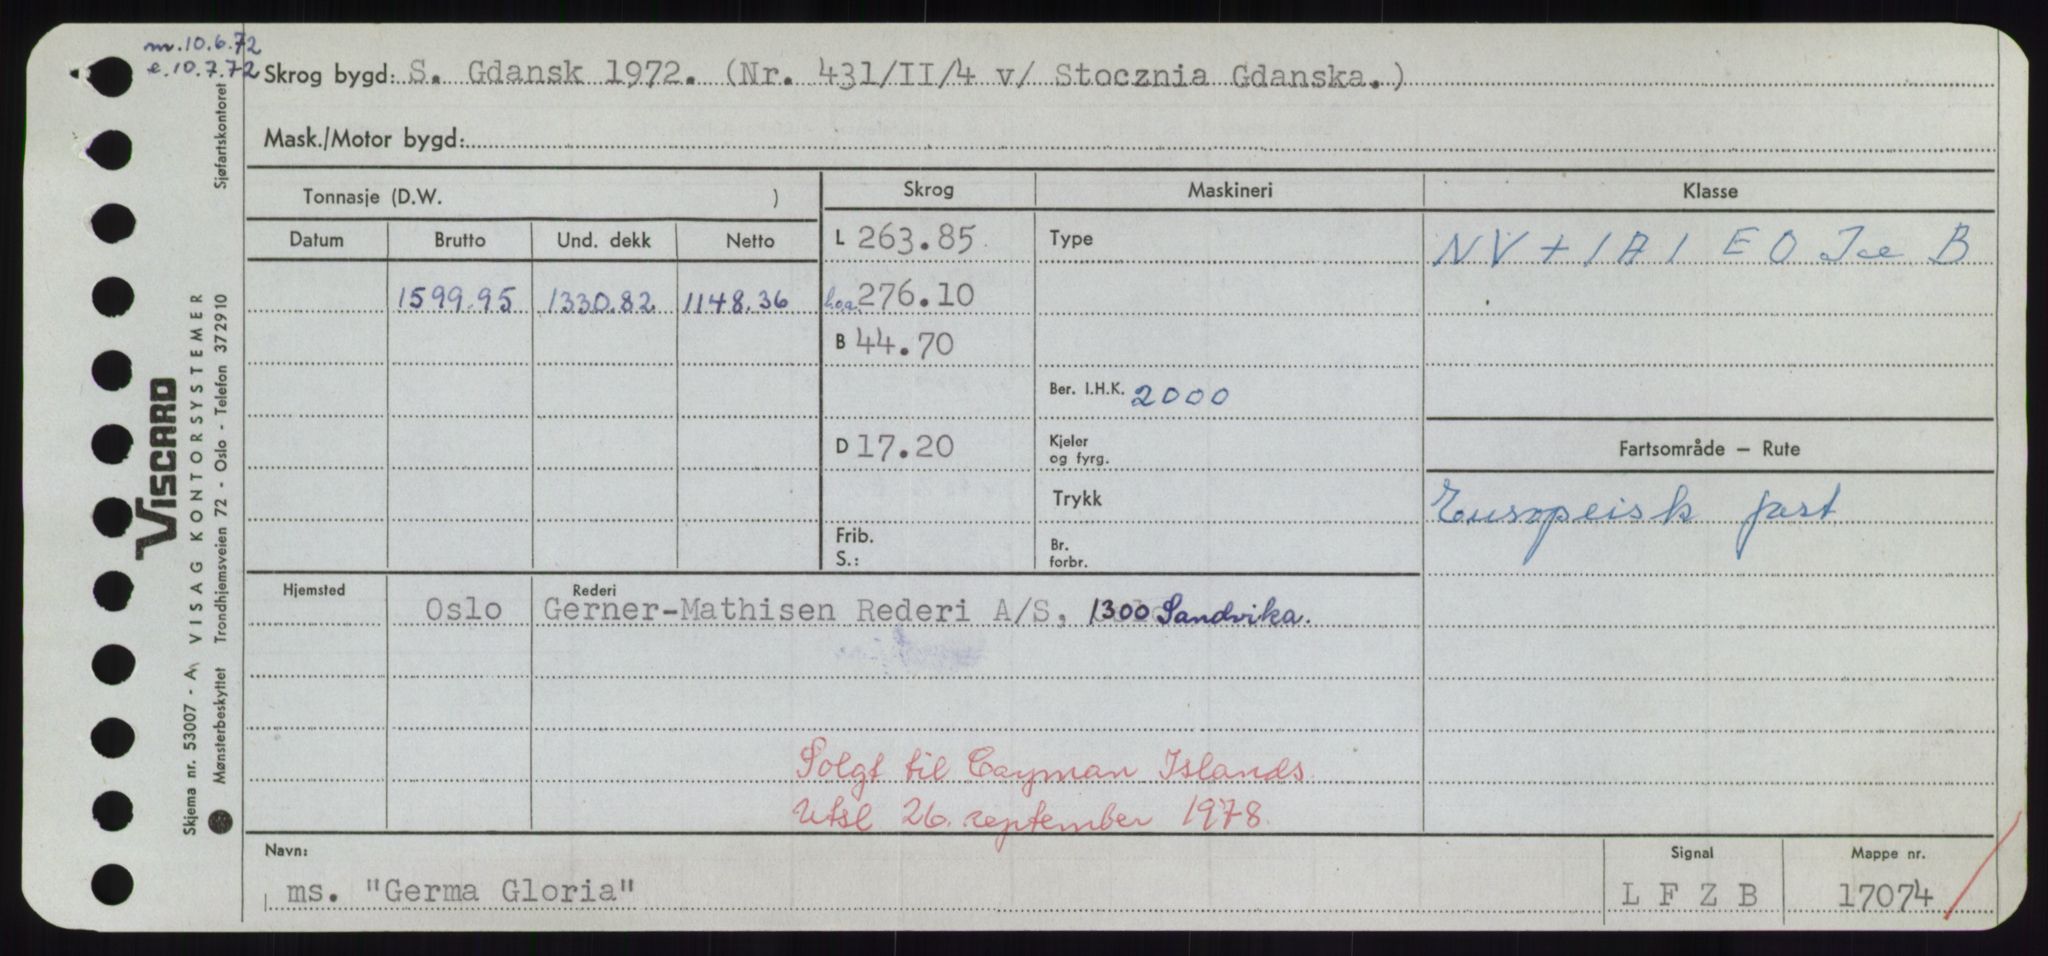 m.10.6.72
e.10.7.72
Skrog bygd: S. Gdansk 1972. (Nr. 431/II/4 v/ Stocznia Gdanska.)
Mask./Motor bygd:
Tonnasje (D.W. )
Skrog
Maskineri
Klasse
Datum Brutto Und. dekk Netto
L 263.85
Type
NV + 1A1 EO Ice B
1599.95 1330.82 1148.36
l.o.a. 276.10
B 44.70
Ber. I.H.K. 2000
D 17.20
Kjeler
og fyrg.
Fartsområde – Rute
Trykk
Europeisk fart
Frib.
S.:
Br.
forbr.
Hjemsted
Rederi
Oslo Gerner-Mathisen Rederi A/S, 1300 Sandvika.
Solgt til Cayman Islands
Utsl 26. september 1978.
Navn:
Signal
Mappe nr.
ms. "Germa Gloria"
L F Z B
17074
VISCARD
Skjema nr. 53007 - A VISAG KONTORSYSTEMER
Mønsterbeskyttet Trondhjemsveien 72 - Oslo - Telefon 372910 Sjøfartskontoret